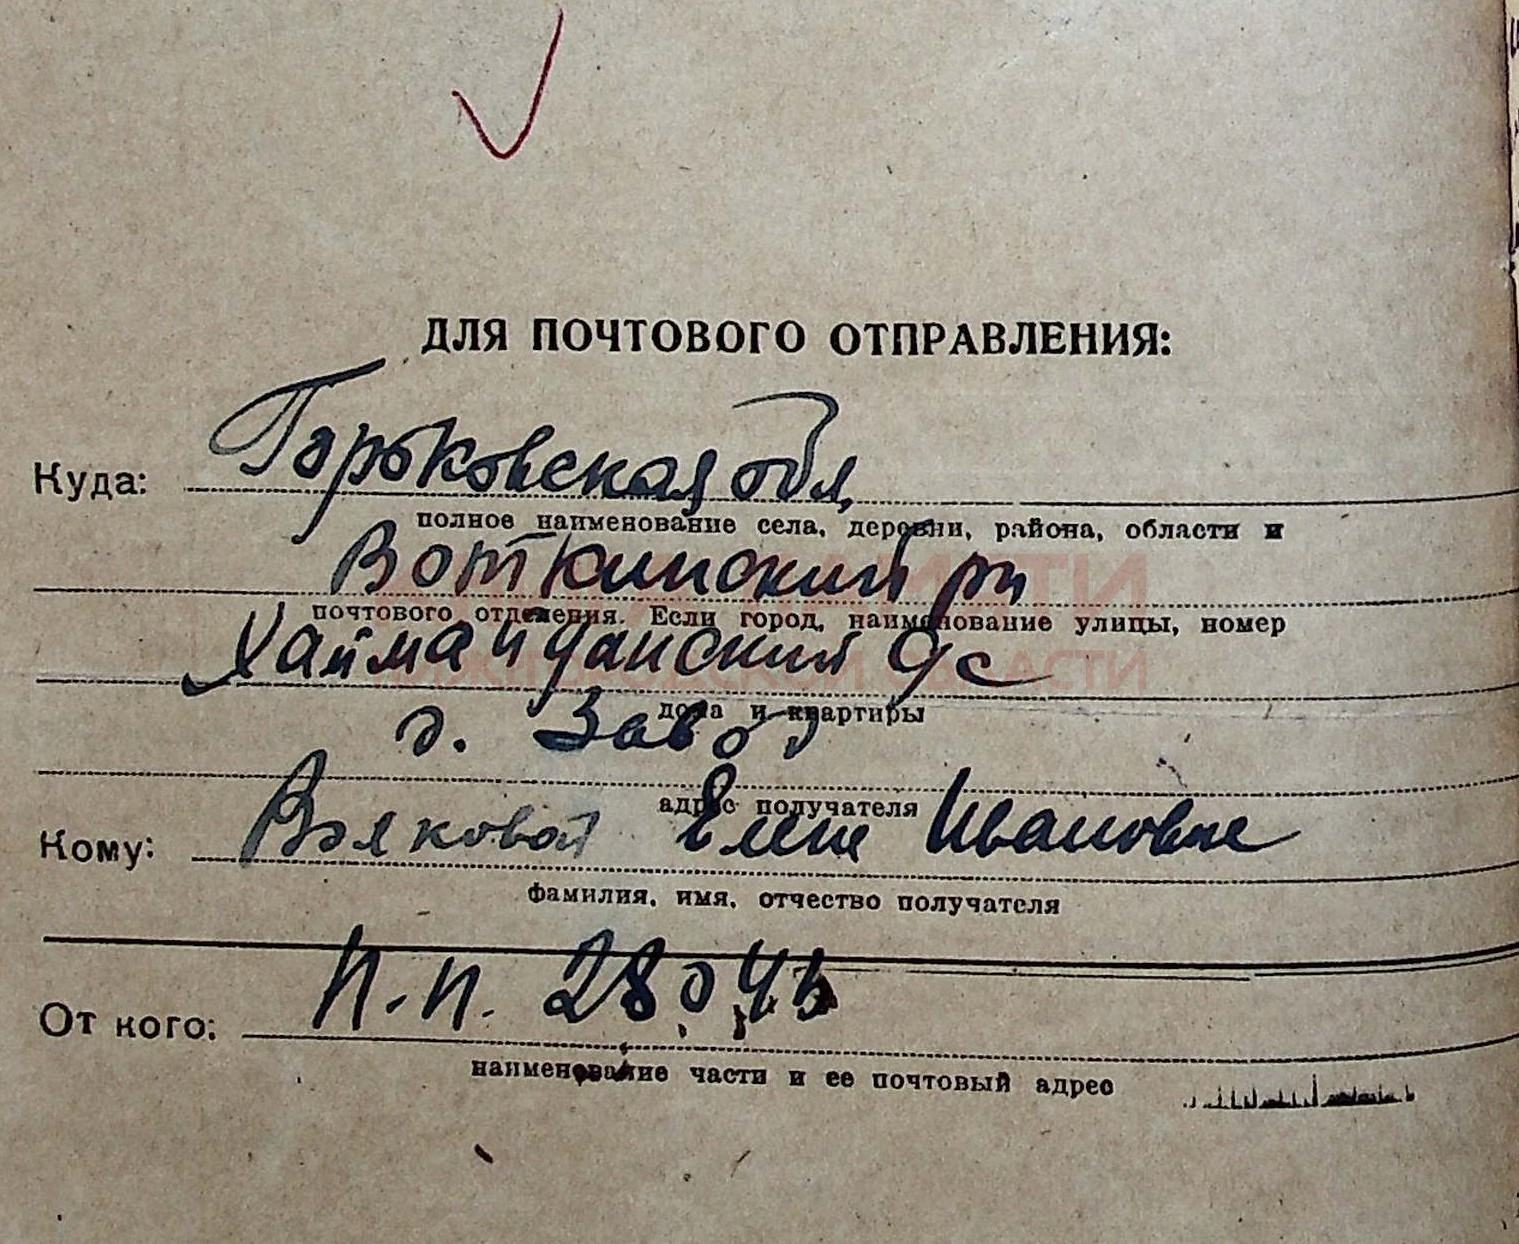 ДЛЯ ПОЧТОВОГО ОТПРАВЛЕНИЯ:
Куда: Горьковская обл,
полное наименование села, деревни, района, области и
Воткинский рн
почтового отделения. Если город, наименование улицы, номер
Хаймайданский с
дома и квартиры
д. Завод
адрес получателя
Кому: Елене Ивановне
фамилия, имя, отчество получателя
От кого: П.п. 28043
наименование части и ее почтовый адрес